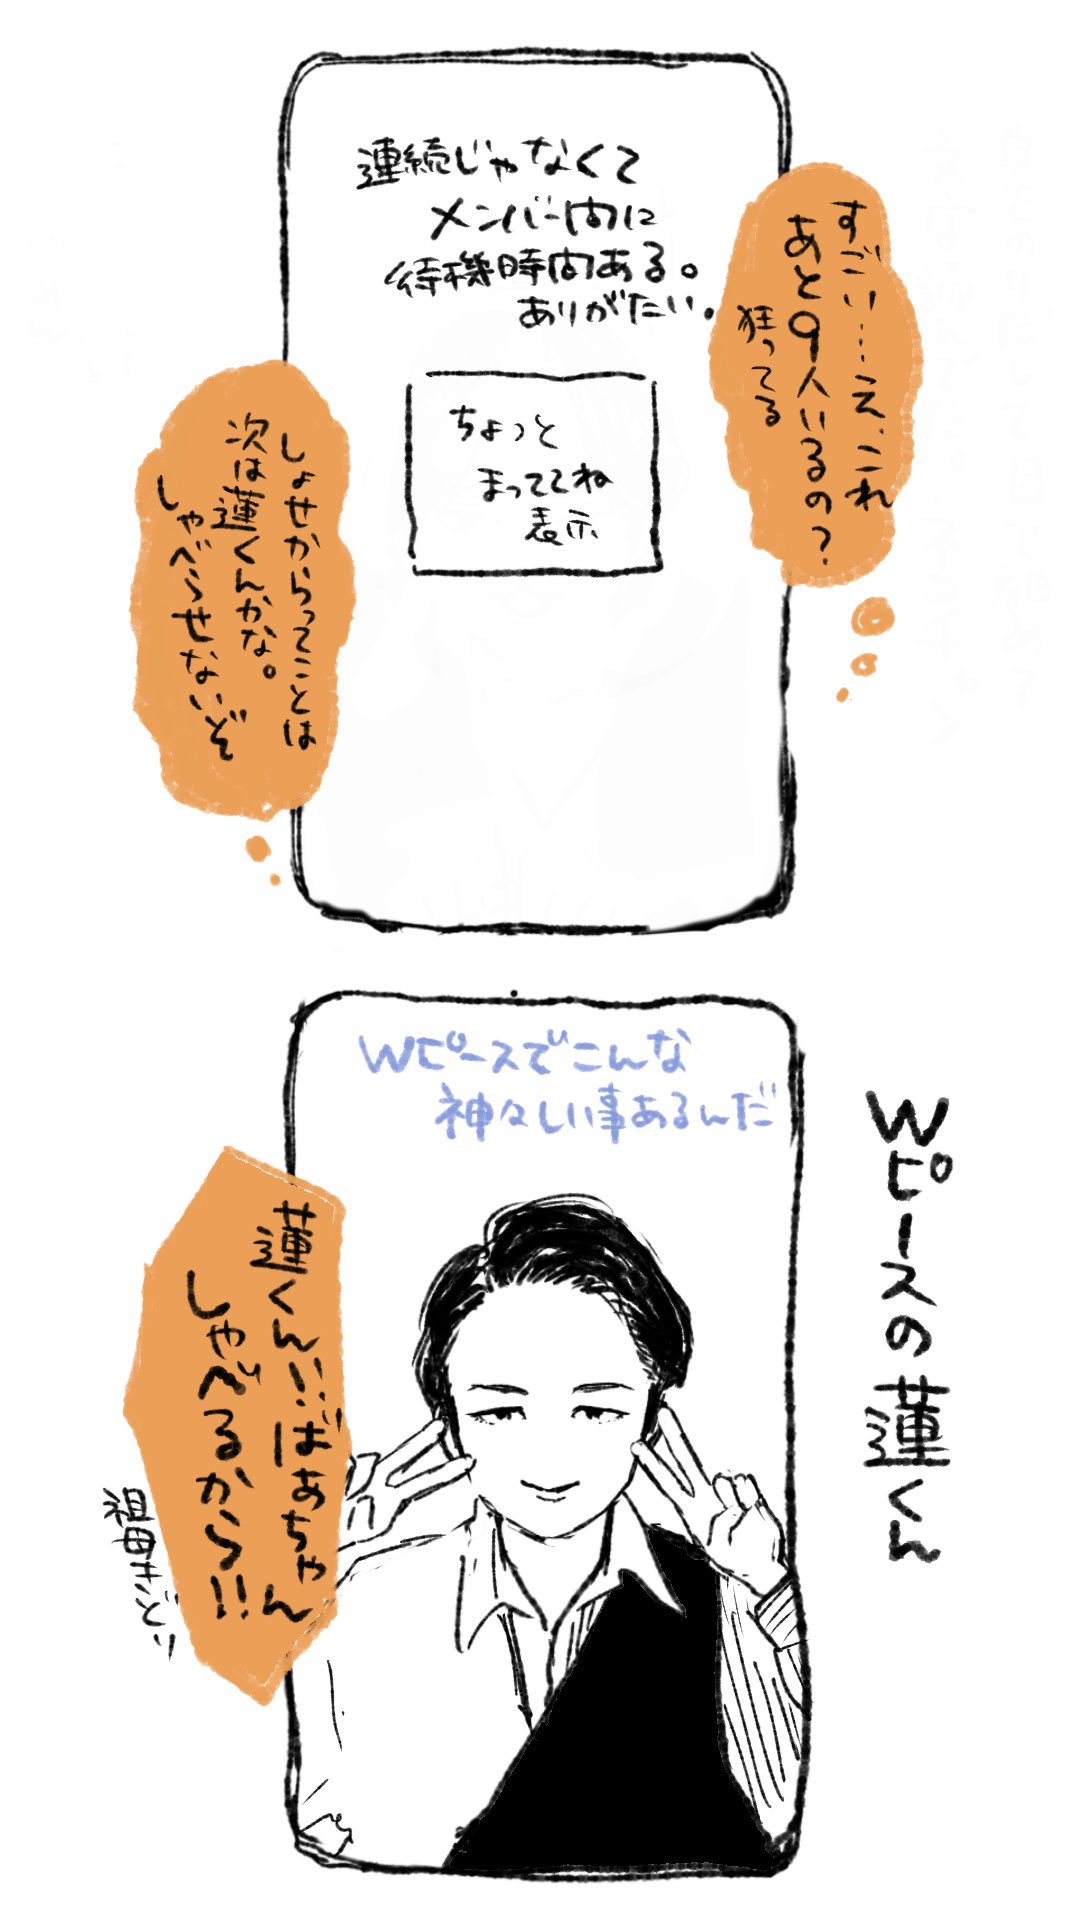 連続じゃなくて
メンバー間に
待機時間ある。
ありがたい。
すごい…え、これ
あと9人いるの？
狂ってる
ちょっと
まっててね
表示
しょせからってことは
次は蓮くんかな。
しゃべらせないぞ
Wピースでこんな
神々しい事あるんだ
Wピースの蓮くん
蓮くん!!ばあちゃん
しゃべるから!!
祖母きどり